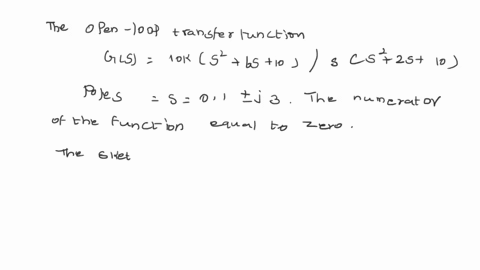 The open-loop transfer function
G(s) = 10K (s² + 6s + 10) / s (s² + 2s + 10)
Poles = s = 0, 1 ± j 3. The numrator
of the function equal to zero.
The sket